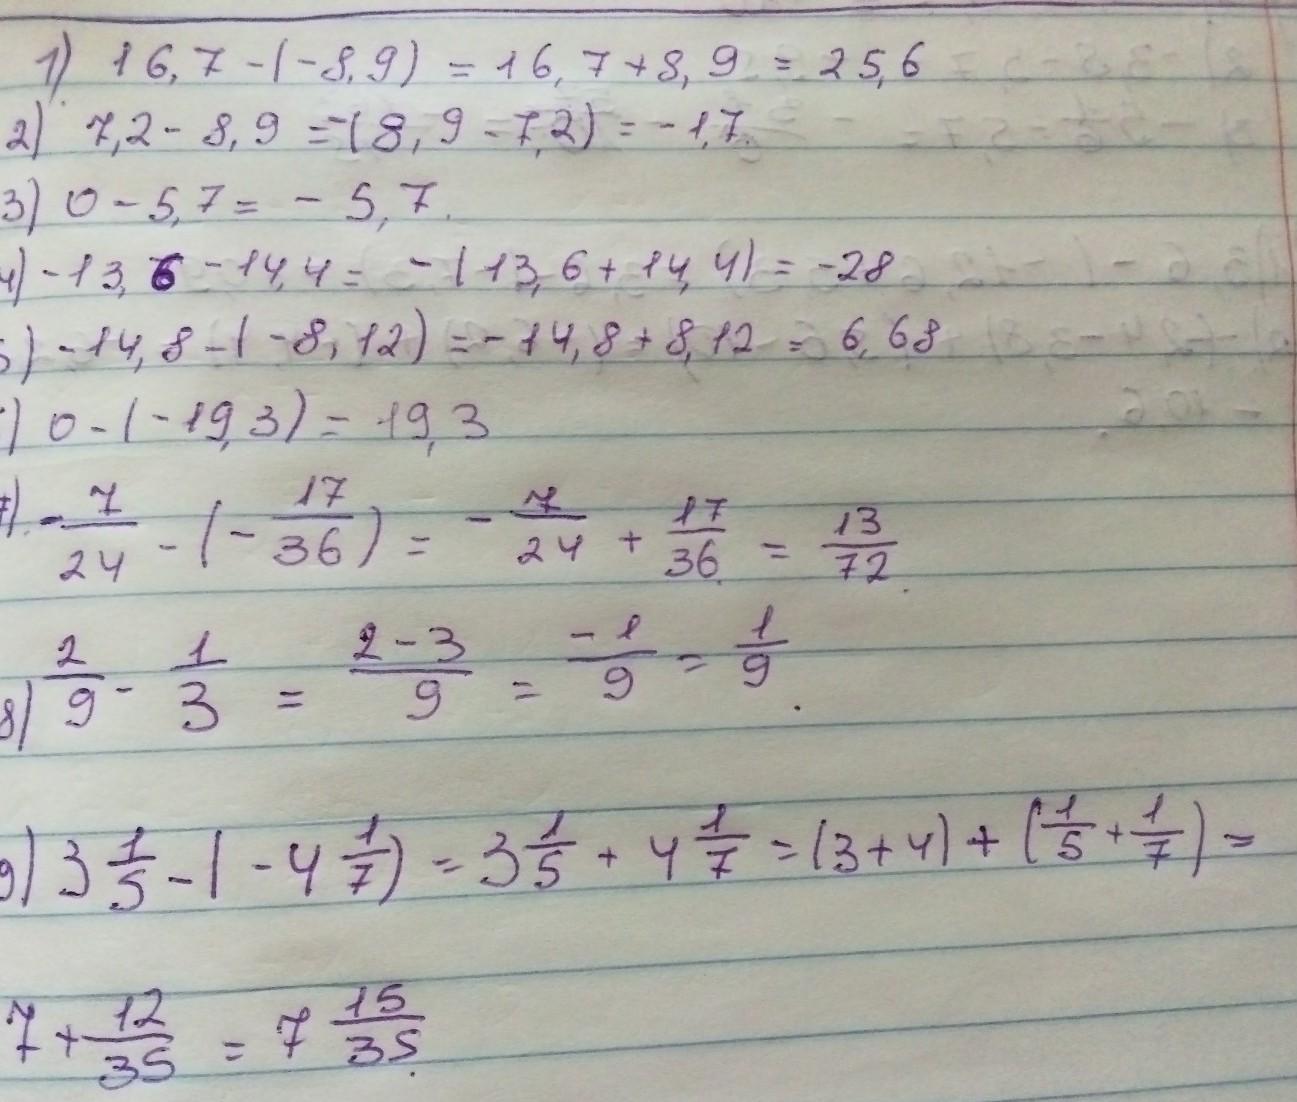 1) 16,7 - (-8,9) = 16,7 + 8,9 = 25,6
2) 7,2 - 8,9 = -(8,9 - 7,2) = -1,7.
3) 0 - 5,7 = - 5,7.
4) -13,6 - 14,4 = -(13,6 + 14,4) = -28
5) -14,8 - (-8,12) = -14,8 + 8,12 = 6,68
) 0 - (-19,3) = 19,3
7). - 7/24 - (- 17/36) = - 7/24 + 17/36 = 13/72.
8) 2/9 - 1/3 = 2-3/9 = -1/9 = 1/9.
9) 3 1/5 - (-4 1/7) = 3 1/5 + 4 1/7 = (3+4) + (1/5 + 1/7) =
7 + 12/35 = 7 15/35.